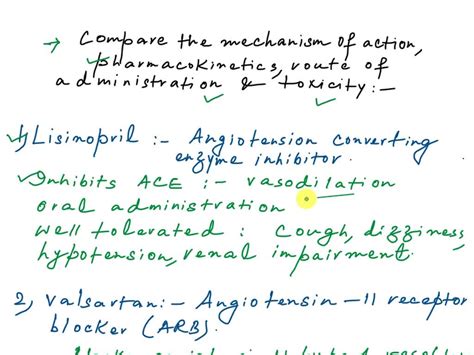 → Compare the mechanism of action,
pharmacokinetics, route of
administration & toxicity:-
1) Lisinopril :- Angiotension converting
enzyme inhibitor.
Inhibits ACE :- vasodilation
oral administration
well tolerated : Cough, dizziness,
hypotension, renal impairment.
2) Valsartan:- Angiotensin-II receptor
blocker (ARB).